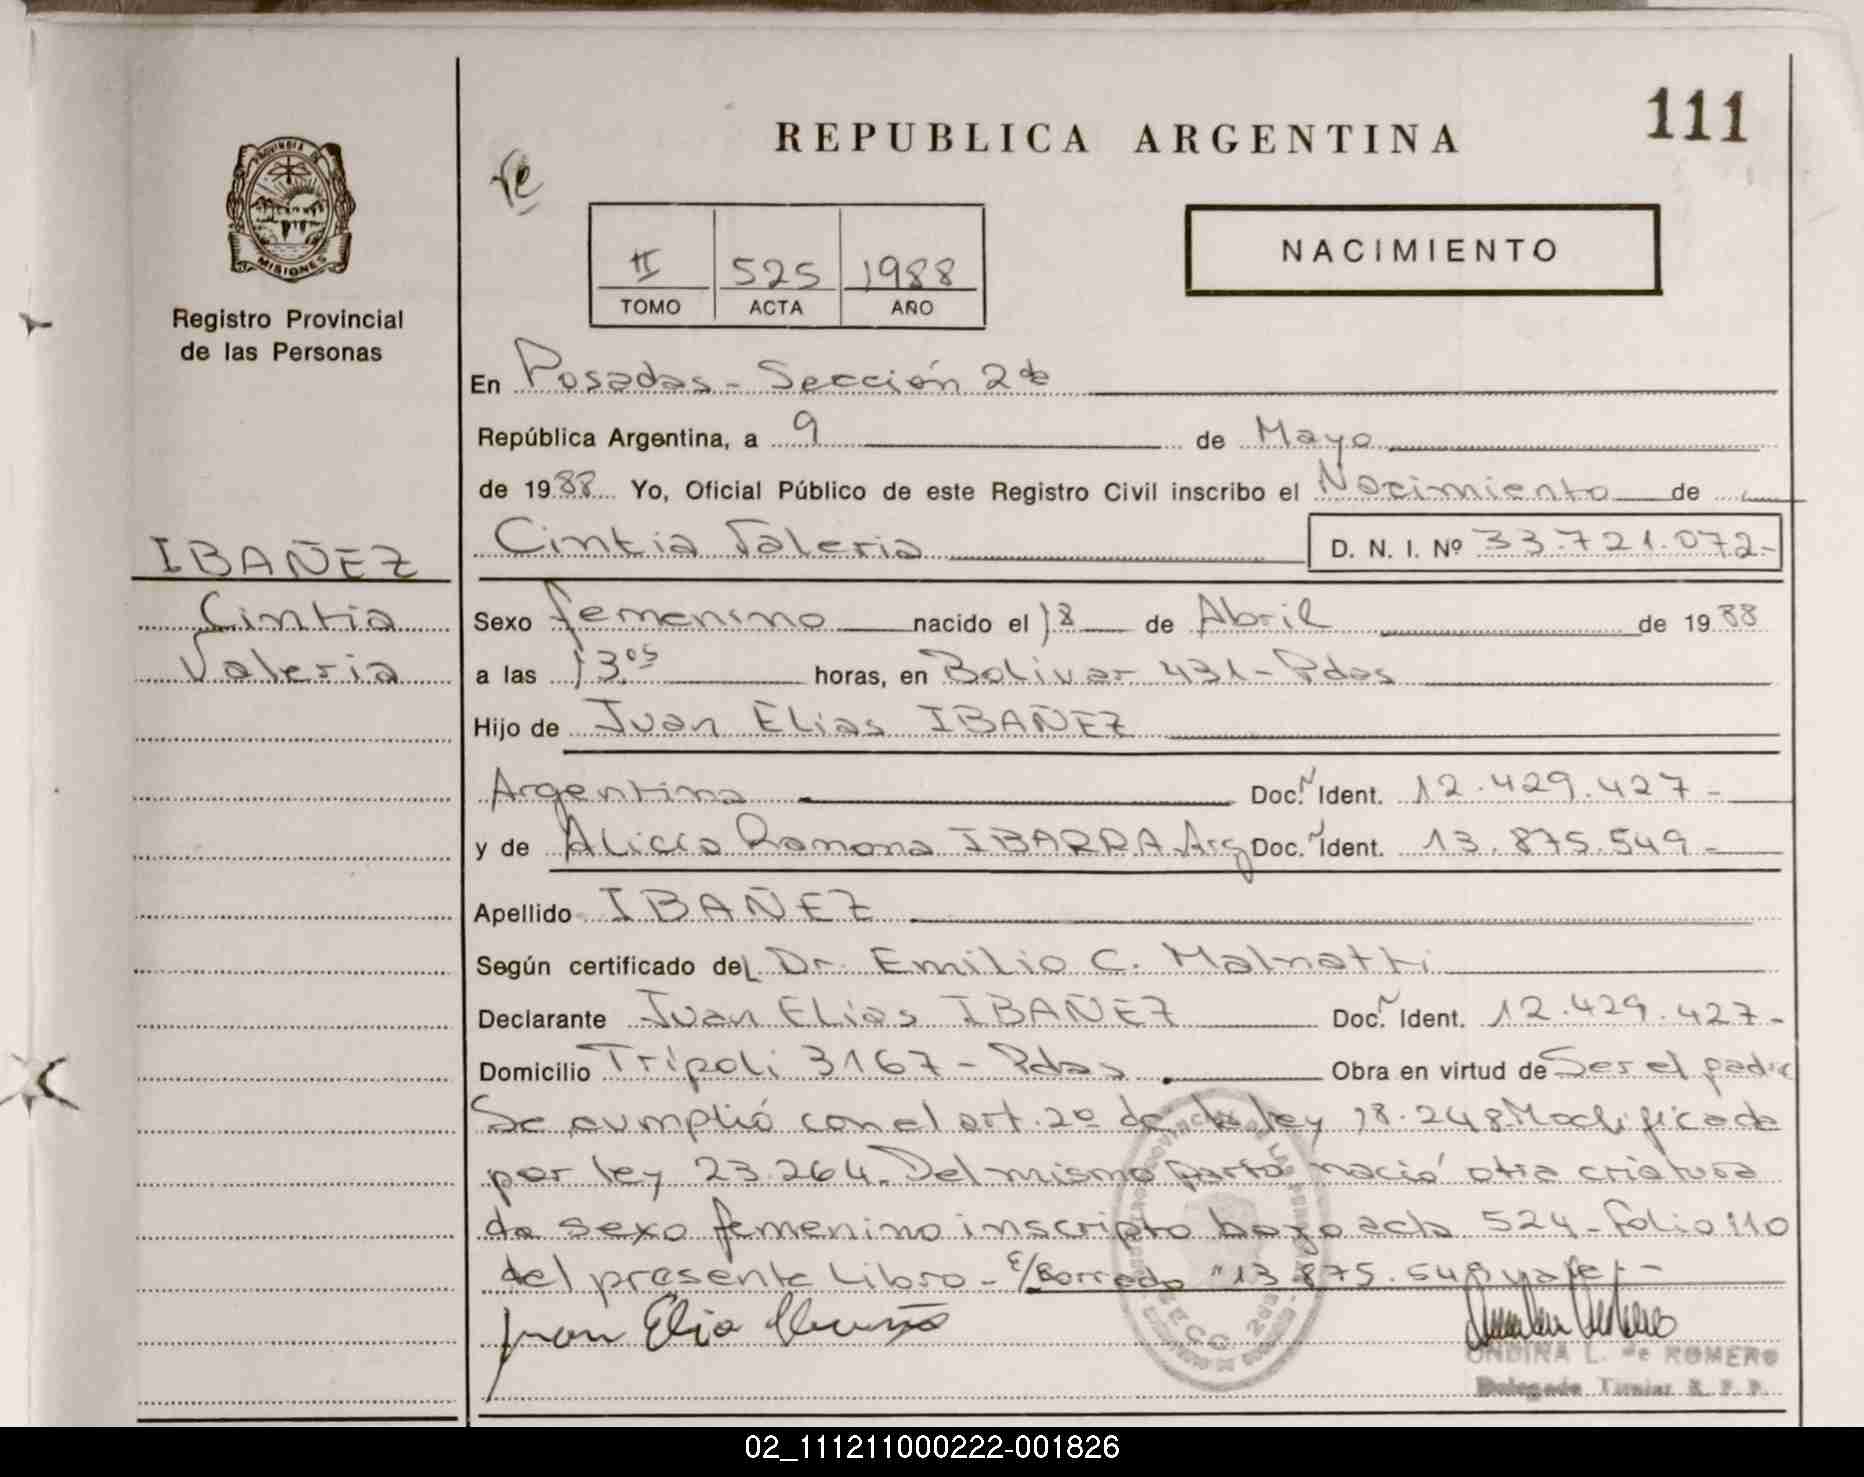 111
REPUBLICA ARGENTINA
PROVINCIA DE
MISIONES
Registro Provincial
de las Personas
NACIMIENTO
II 525 1988
TOMO ACTA AÑO
En Posadas - Sección 2da
República Argentina, a 9 de Mayo
de 1988 Yo, Oficial Público de este Registro Civil inscribo el Nacimiento de
Cintia Valeria D. N. I. Nº 33.721.072-
IBAÑEZ
Cintia
Valeria
Sexo femenino nacido el 18 de Abril de 1988
a las 13.05 horas, en Bolivar 431 - Pdas
Hijo de Juan Elias IBAÑEZ
Argentina Doc. Ident. 12.429.427-
y de Alicia Ramona IBARRA Arg Doc. Ident. 13.875.549-
Apellido IBAÑEZ
Según certificado del Dr. Emilio C. Malnatti
Declarante Juan Elias IBAÑEZ Doc. Ident. 12.429.427-
Domicilio Trípoli 3167 - Pdas Obra en virtud de Ser el padre
Se cumplió con el art. 2º de la ley 18.248 Modificada
por ley 23.264. Del mismo parto nació otra criatura
de sexo femenino inscripto bajo acta 524 - folio 110
del presente Libro - E/Borrado "13.875.549" vale -
Juan Elia
ONDINA L. de ROMERO
Delegada Titular R. P. P.
02_111211000222-001826